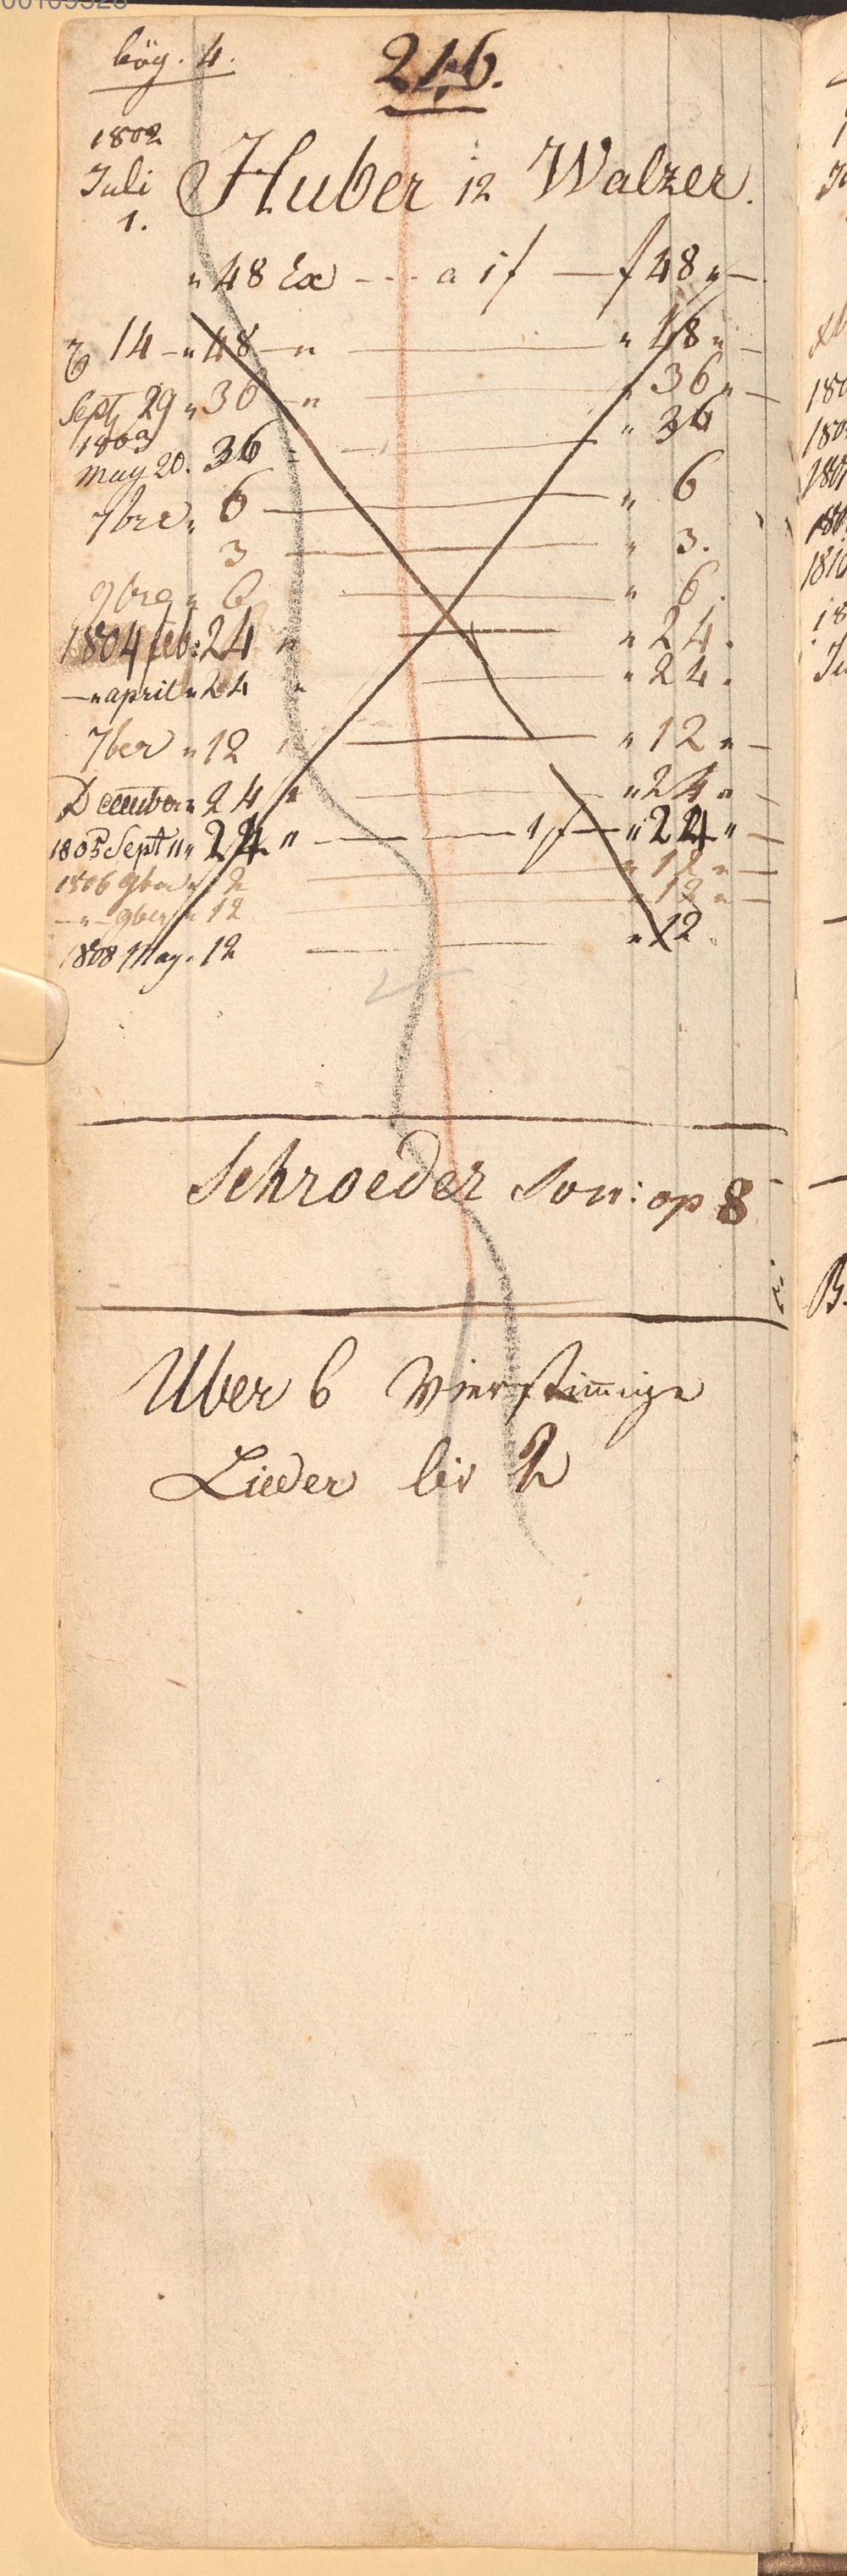 bög. 4.
216.
1802
Juli
1.
Huber 12 Walzer.
" 48 Ex --- a 1 f — f 48 " —
14 — " 48 — " — " 48 " —
Sept 29 " 36 — " — " 36 " —
1803
May 20. 36 — " 36
7bre " 6 — " 6
3 — " 3.
9bre " 6 — " 6.
1804 feb: 24 " — " 24.
— " april " 24 " — " 24.
7ber " 12 " — " 12 " —
December " 24 " — " 24 " —
1805 Sept " 24 " — 1 f — " 24 " —
1806 9ber " 12 — " 12 " —
— " — 9ber " 12 — " 12 " —
1808 May " 12 — " 12 "
Schroeder Son: op 8
Uber 6 Vierstimmige
Lieder liv 2